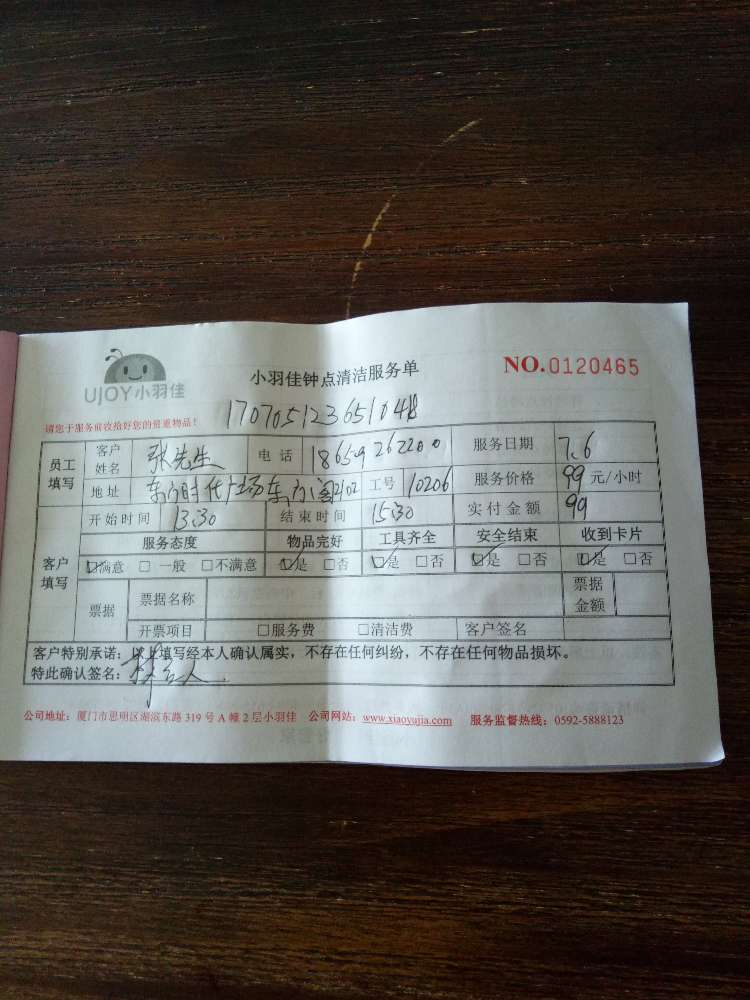 UJOY小羽佳
小羽佳钟点清洁服务单
NO.0120465
请您于服务前收拾好您的贵重物品!
员工填写 客户姓名 张先生 电话 18659262200 服务日期 7.6
地址 东方时代广场东方阁2102 工号 10206 服务价格 99 元/小时
开始时间 13:30 结束时间 15:30 实付金额 99
客户填写 服务态度 物品完好 工具齐全 安全结束 收到卡片
☑满意 □一般 □不满意 ☑是 □否 ☑是 □否 ☑是 □否 ☑是 □否
票据 票据名称 票据金额
开票项目 □服务费 □清洁费 客户签名
客户特别承诺:以上填写经本人确认属实,不存在任何纠纷,不存在任何物品损坏。
特此确认签名:
公司地址:厦门市思明区湖滨东路 319 号 A 幢 2 层小羽佳 公司网站:www.xiaoyujia.com 服务监督热线:0592-5888123